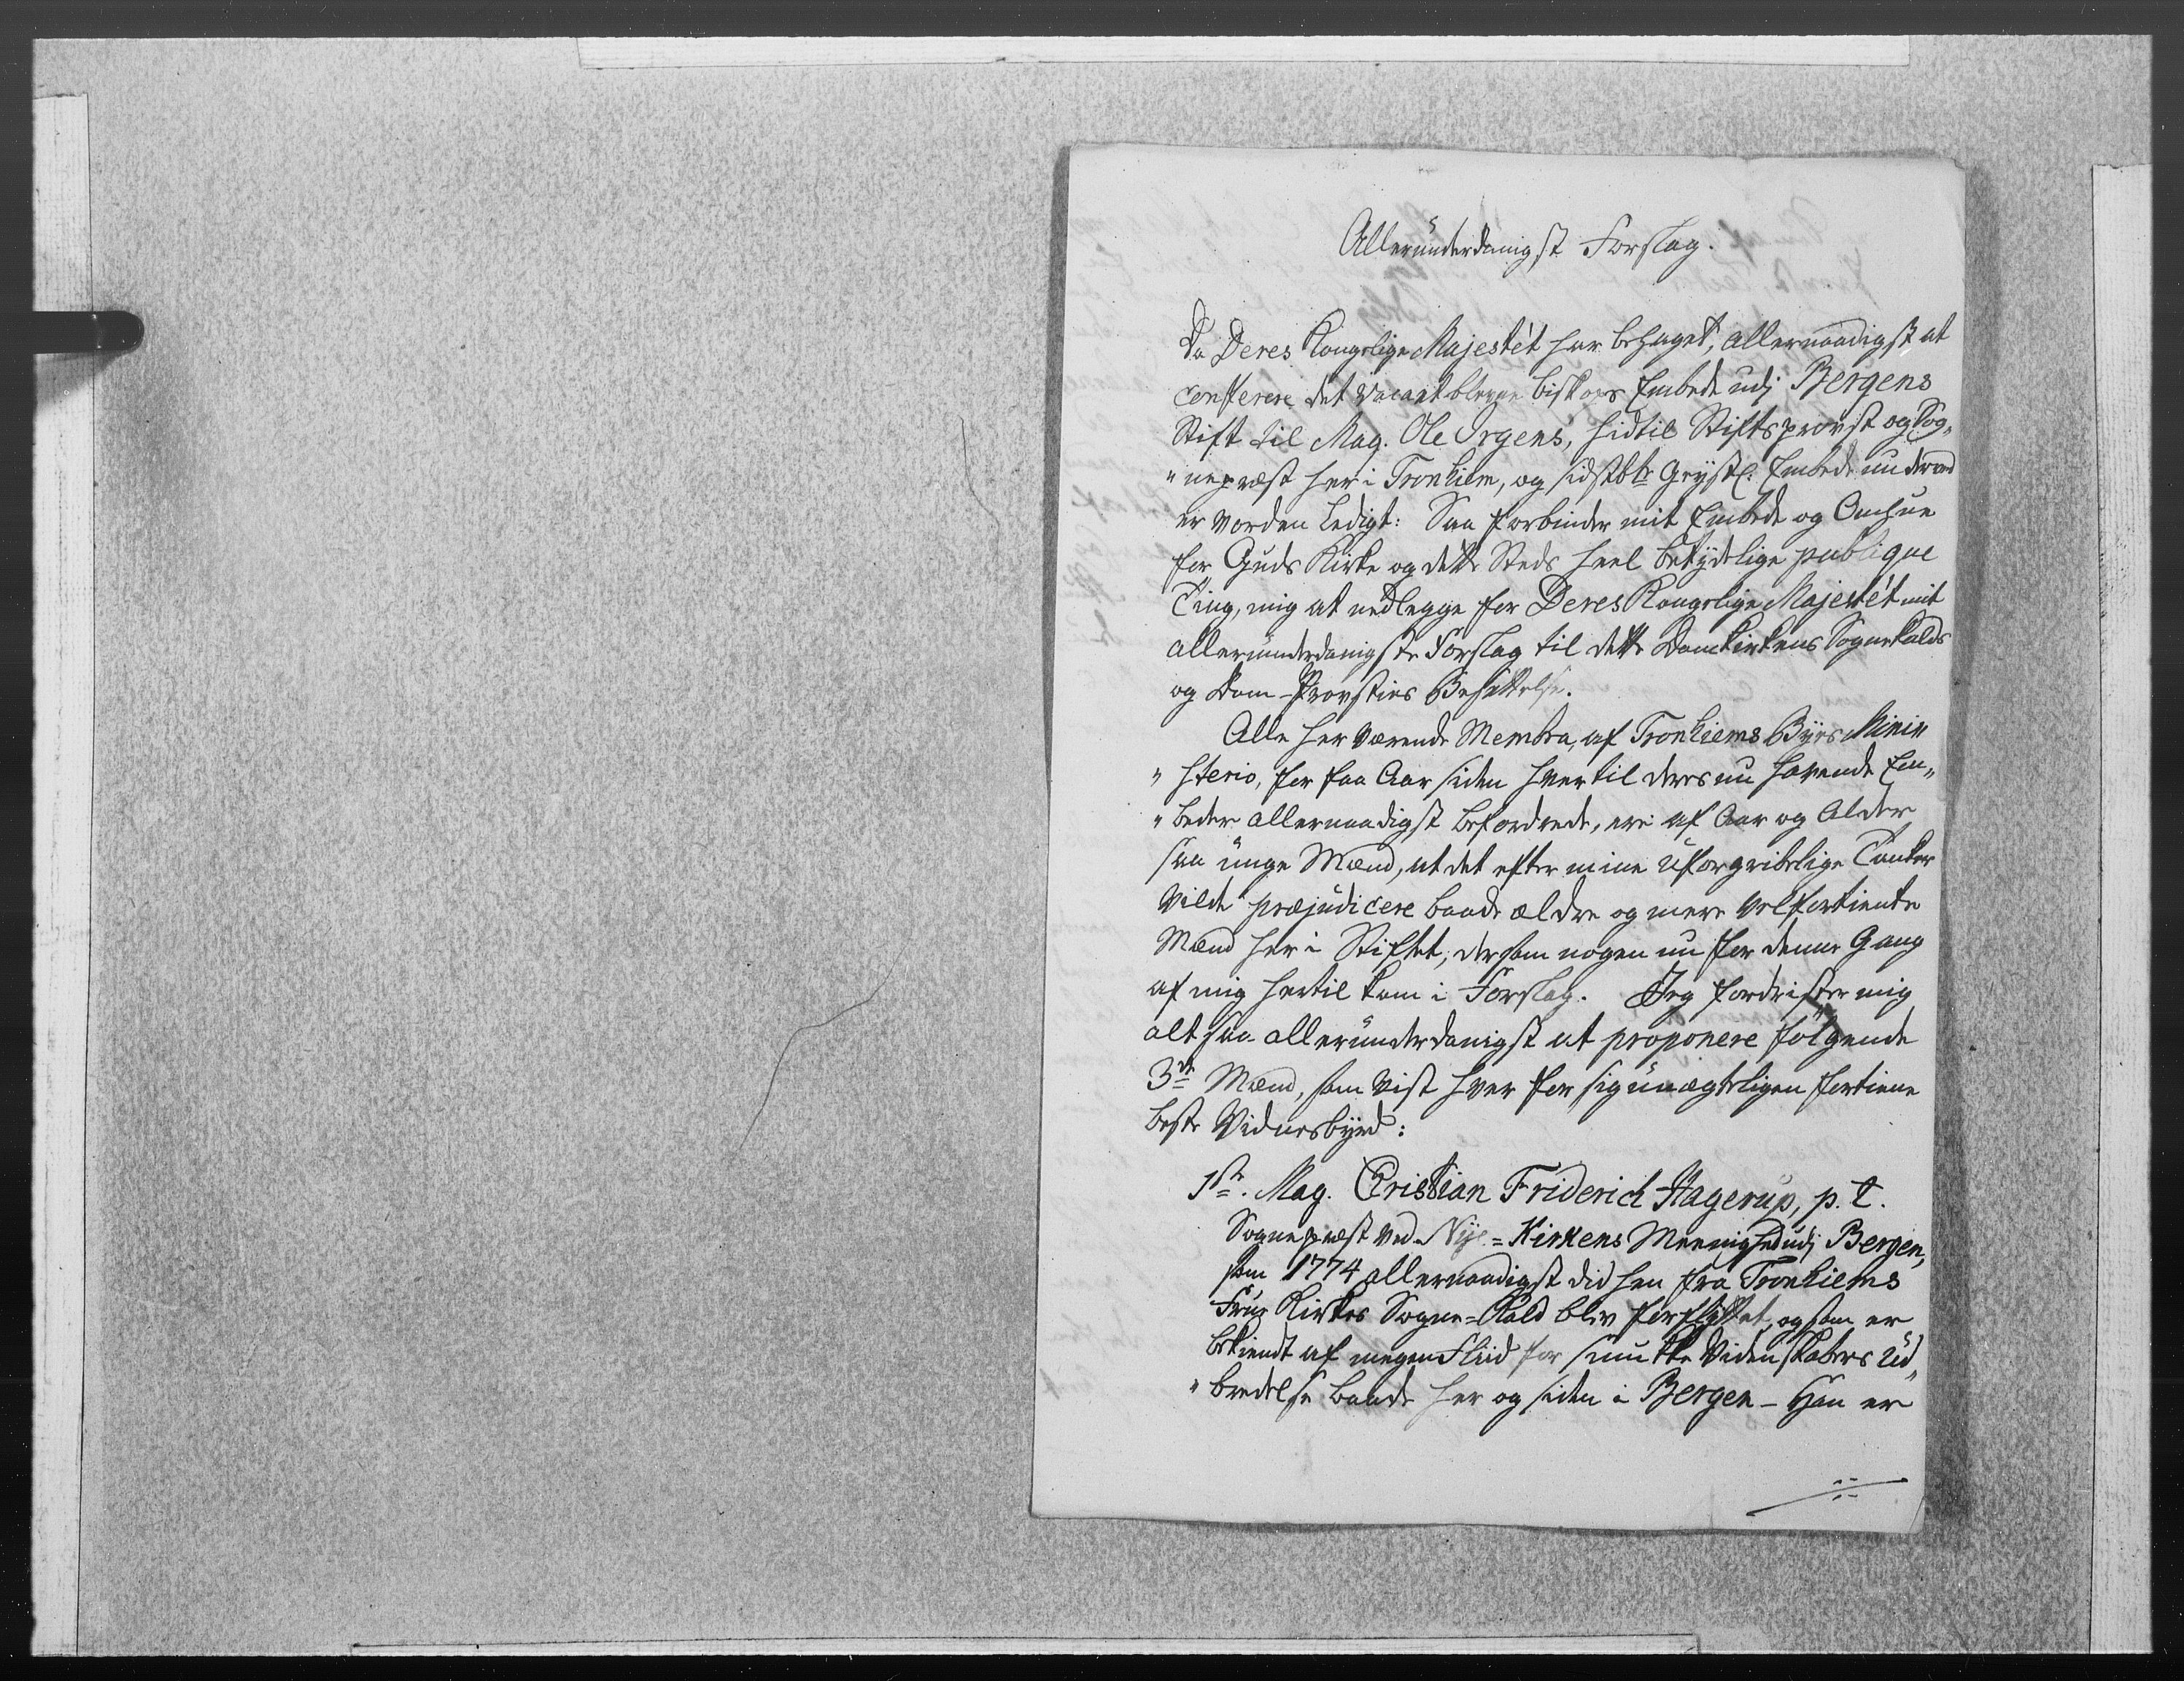 Allerünterdanigst Forslag.
Da Deres Kongelige Majestét har behaget, allernaadigst at
conferere det vacant blevne biskops Embede udj Bergens
Stift til Mag. Ole Irgens, hidtil Stiftsprovst og Sog„
„nepræst her i Tronhiem, og sidstbte Geystl. Embede nu derved
er vorden ledigt: Saa forbinder mit Embede og Omhue
for Guds Kirke og dette Steds heel betydelige publique
Ting, mig at nedlegge for Deres Kongelige Majestét mit
allerünterdanigste Forslag til dette Domkirkens Sognekalds
og Dom-Provsties Besættelse.
Alle her værende Membra, af Tronhiems Byes Mini„
„sterio, for faa Aar siden hver til deres nu havende Em„
„beder allernaadigst befordrede, ere af Aar og Alder
saa ünge Mænd, at det efter mine uforgribelige Tanker
vilde præjüdicere baade ældre og mere velfortiente
Mænd her i Stiftet, dersom nogen nu for denne Gang
af mig hertil kom i Forslag. Jeg fordrister mig
altsaa allerünterdanigst at proponere følgende
3de Mænd, som vist hver for sig ünægteligen fortiene
beste Vidnesbyrd:
1ste. Mag. Christian Friderich Hagerup, p. t.
Sognepræst ved Nye=Kirkens Meenighed udj Bergen,
som 1774 allernaadigst did hen fra Tronhiems
Frue Kirkes Sogne=Kald blev forflyttet, og som er
bekiendt af megen Fliid for smukke Videnskabers Ud„
„bredelse baade her og siden i Bergen – Han er